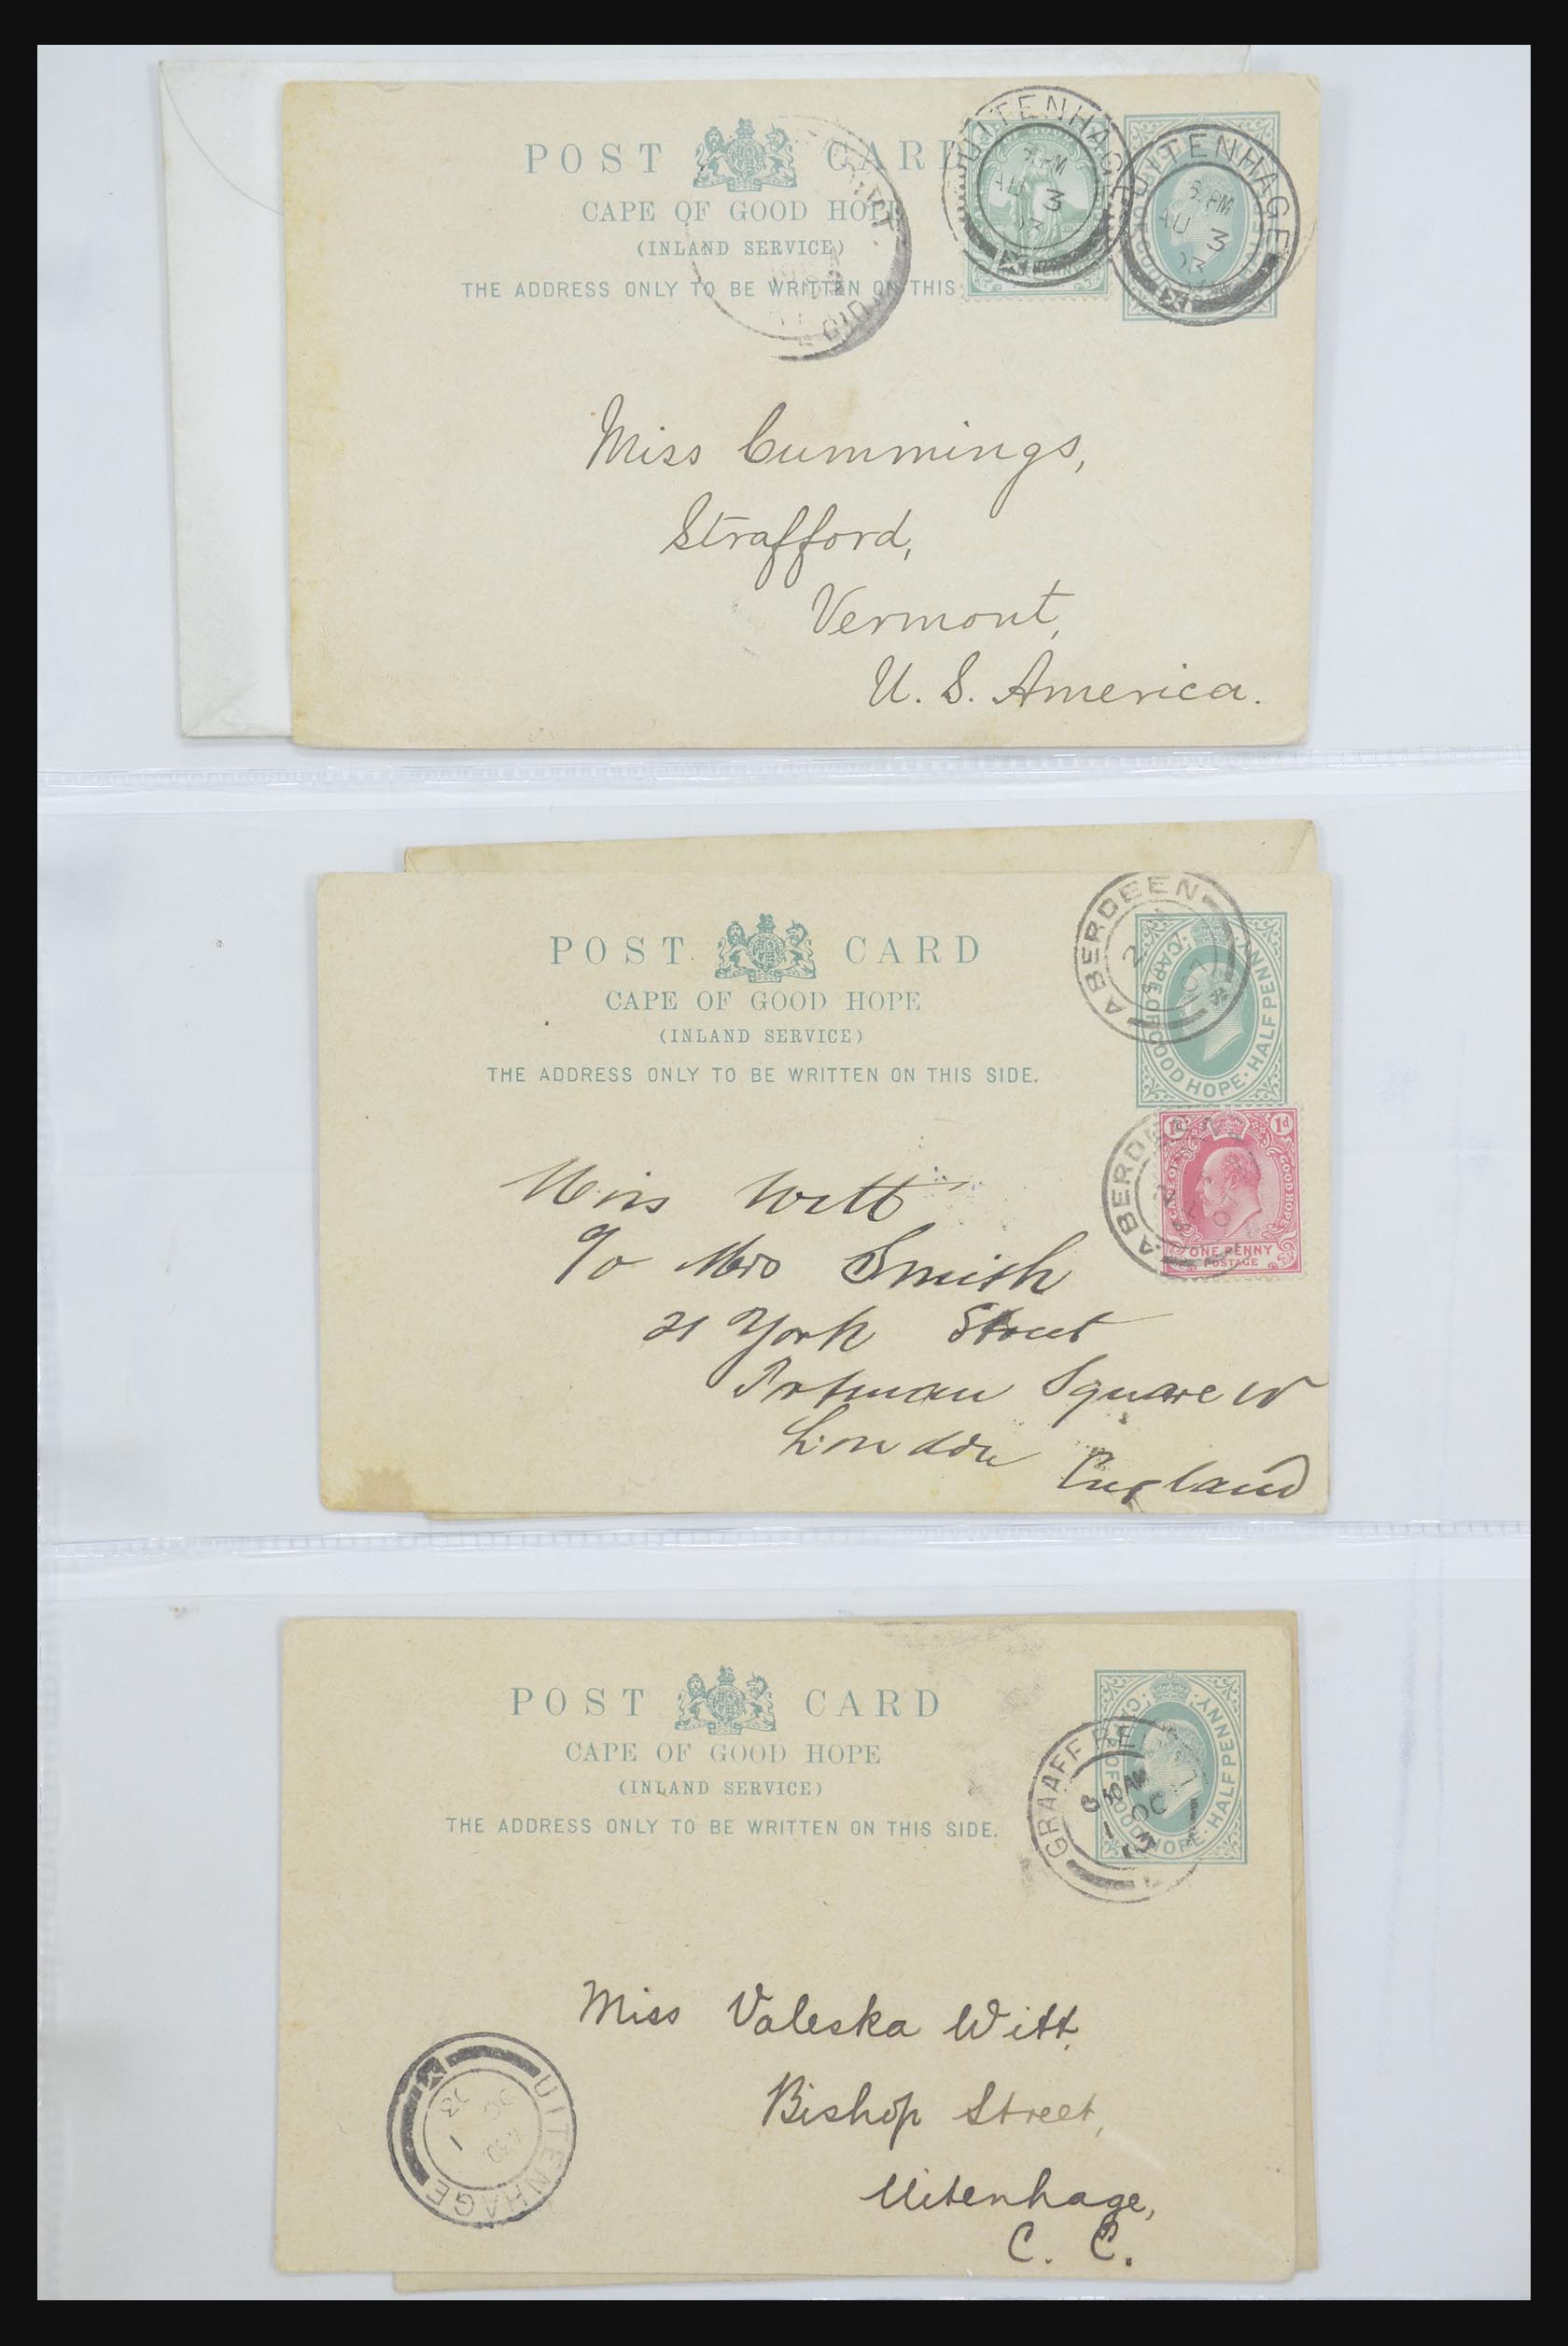 POST CARD
CAPE OF GOOD HOPE
(INLAND SERVICE)
THE ADDRESS ONLY TO BE WRITTEN ON THIS
UITENHAGE
3 PM
AU 3
03
UITENHAGE
3 PM
AU 3
03
Miss Cummings,
Strafford,
Vermont,
U. S. America.
POST CARD
CAPE OF GOOD HOPE
(INLAND SERVICE)
THE ADDRESS ONLY TO BE WRITTEN ON THIS SIDE.
ABERDEEN
CAPE OF GOOD HOPE · HALF PENNY
ABERDEEN
1d 1d
CAPE OF GOOD HOPE
ONE PENNY
POSTAGE
Miss Witt
c/o Mrs Smith
21 York Street
Portman Square W
London
England
POST CARD
CAPE OF GOOD HOPE
(INLAND SERVICE)
THE ADDRESS ONLY TO BE WRITTEN ON THIS SIDE.
CAPE OF GOOD HOPE · HALF PENNY
GRAAFF RE
8 30 AM
OC
1
03
Miss Valeska Witt,
Bishop Street,
Uitenhage,
C. C.
UITENHAGE
OC
1
03